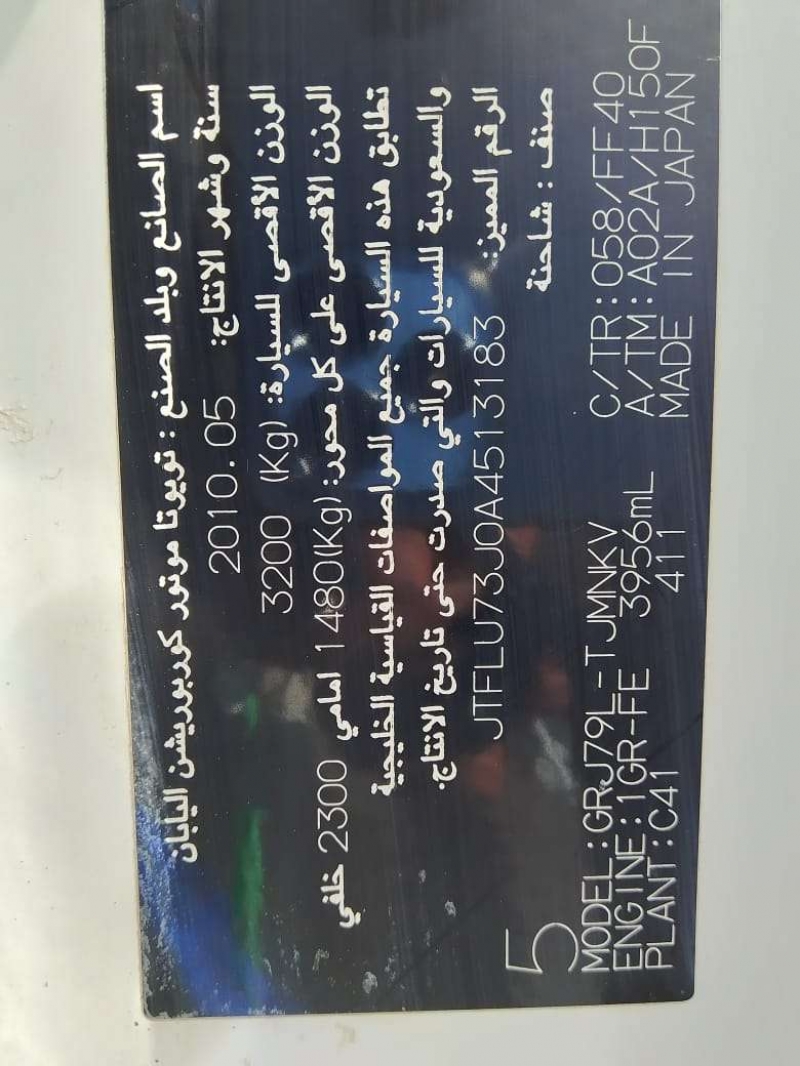 اسم الصانع وبلد الصنع : تويوتا موتور كوربوريشن اليابان
سنة وشهر الانتاج: 2010.05
الوزن الاقصى للسيارة: 3200 (Kg)
الوزن الاقصى على كل محور: (Kg)1480 امامي 2300 خلفي
تطابق هذه السيارة جميع المواصفات القياسية الخليجية
والسعودية للسيارات والتي صدرت حتى تاريخ الانتاج.
الرقم المميز: JTFLU73J0A4513183
صنف : شاحنة
5
MODEL:GRJ79L-TJMNKV C/TR:058/FF40
ENGINE:1GR-FE 3956mL A/TM:A02A/H150F
PLANT:C41 411 MADE IN JAPAN